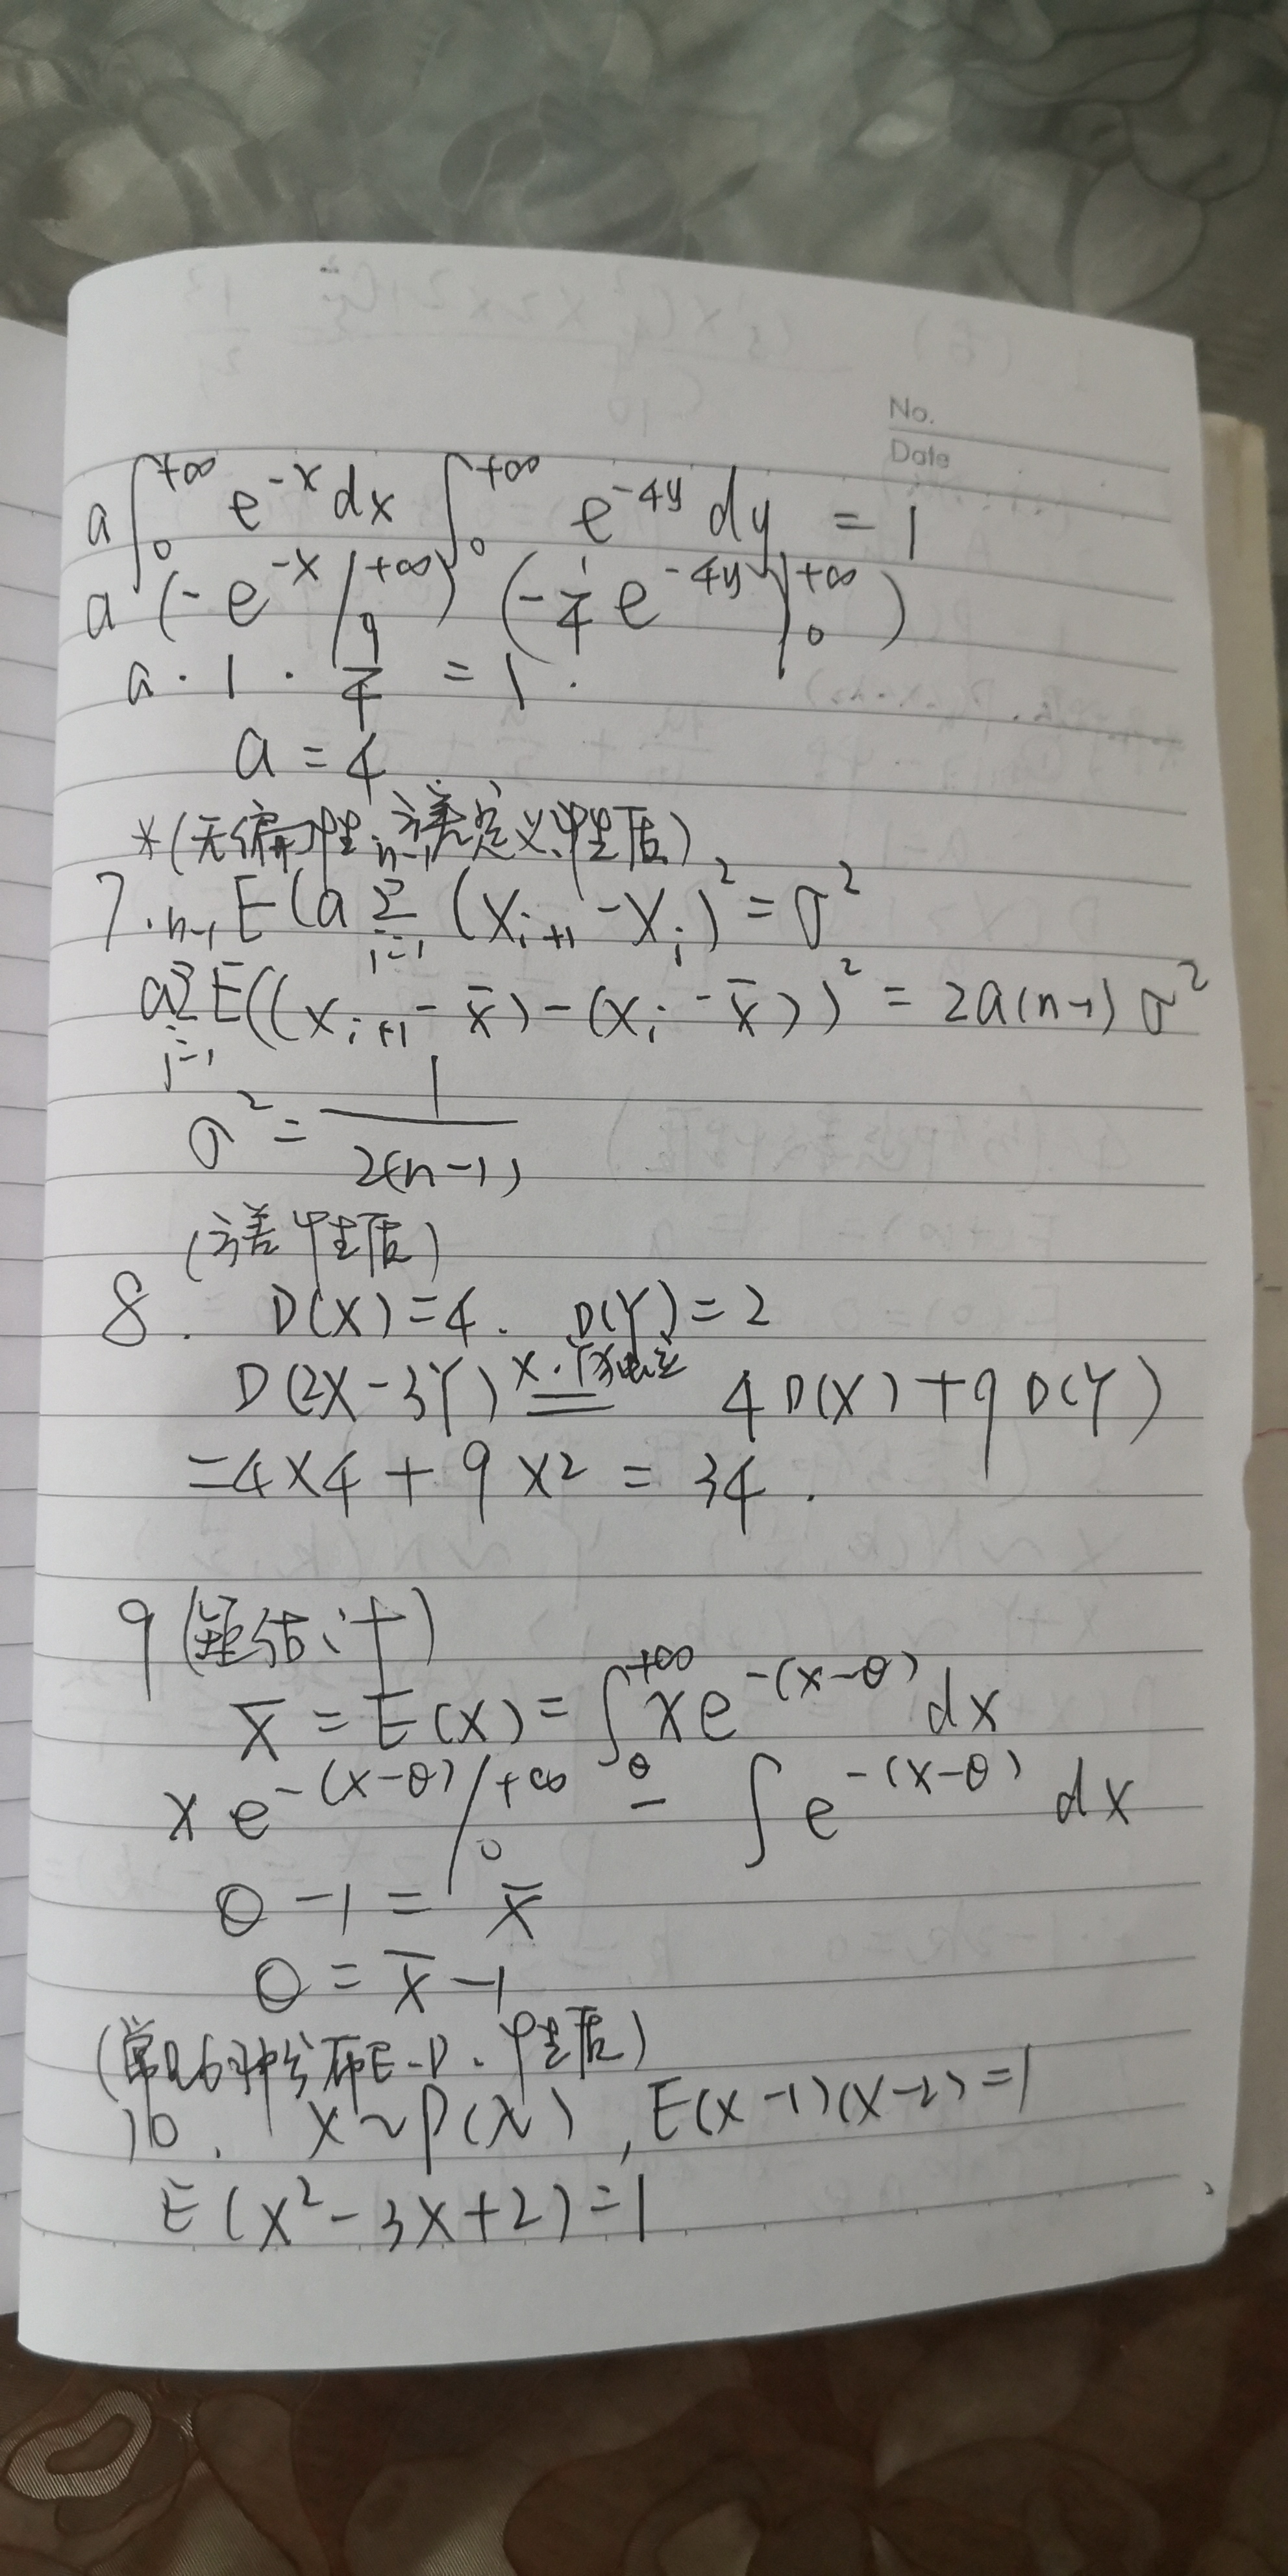 No.
Date
a∫₀^{+∞} e^{-x} dx ∫₀^{+∞} e^{-4y} dy = 1
a (-e^{-x} |₀^{+∞}) (-1/4 e^{-4y} |₀^{+∞})
a · 1 · 1/4 = 1.
a = 4
*(无偏性、方差定义、性质)
7. E(a Σ_{i=1}^{n-1} (X_{i+1} - X_i)² = σ²
a Σ_{i=1}^{n-1} E((X_{i+1} - x̄) - (X_i - x̄))² = 2a(n-1)σ²
σ² = 1/(2(n-1))
(方差性质)
8. D(X)=4. D(Y)=2
D(2X-3Y) X.Y独立 = 4D(X)+9D(Y)
=4×4+9×2=34.
9 (矩估计)
x̄ = E(x) = ∫_θ^{+∞} x e^{-(x-θ)} dx
x e^{-(x-θ)} |₀^{+∞} - ∫ e^{-(x-θ)} dx
θ - 1 = x̄
θ = x̄ - 1
(常见6种分布E.D.性质)
10. X~P(λ), E(x-1)(x-2)=1
E(x²-3x+2)=1